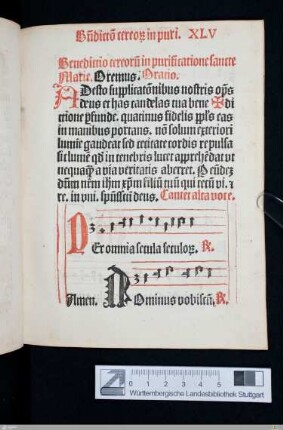 Bñdictō cereoꝝ in puri. XLV
Benedictio cereorū in purificatione sancte
Marie. Oremus. Oratio.
ADesto supplicatōnibus nostris oms̄
deus et has candelas tua bene ✠ di
ctione ꝓfunde. quatinus fidelis ppl̄s eas
in manibus portans. nō solum exteriori
lumīe gaudeat sed cecitate cordis repulsa
sic lumē qd̄ in tenebris lucet apprehēdat ut
nequaꝙ a via veritatis aberret. P eūdeꝫ
dnm̄ nrm̄ ihm̄ xp̄m filiū tuū qui tecū vi. ⁊
re. in vni. spūssctī deus. Cantet alta voce.
PEr omnia secula seculoꝝ. R.
Amen. DOminus vobiscū, R.
cm 0 1 2 3 4 5
Württembergische Landesbibliothek Stuttgart